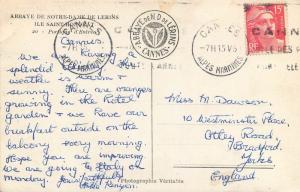 ABBAYE DE NOTRE-DAME DE LERINS
ILE SAINT
Cannes.
We are having a
splendid time. The
weather is warm &
sunny. There are oranges
growing in the hotel
garden & we have our
breakfast outside on the
balcony every morning.
Hope you are improving
We are going to Italy on
monday. Yours faithfully
Kenyon.
ABBAYE DE N.D. DE LERINS
CANNES
Photographie Véritable
CANNES
ALPES MARITIMES
CANNES
-7H15 V5
ALPES MARITIMES
15F
Miss M. Dawson
10 Westminster Place,
Otley Road,
Bradford
Yorks
England